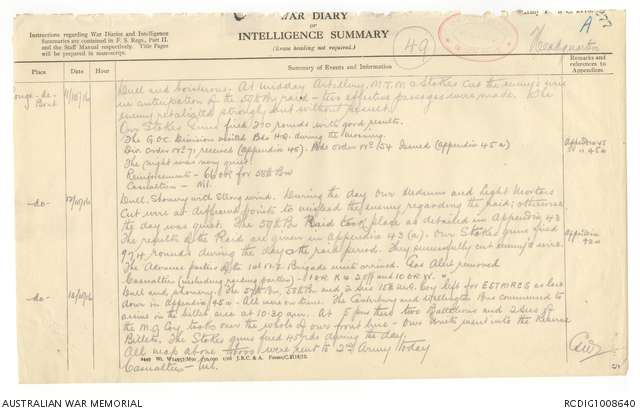 WAR DIARY
OF
INTELLIGENCE SUMMARY
(Erase heading not required.)
Instructions regarding War Diaries and Intelligence
Summaries are contained in F. S. Regs., Part II.
and the Staff Manual respectively. Title Pages
will be prepared in manuscript.
49
Headquarters
Place
Date
Hour
Summary of Events and Information
Remarks and
references to
Appendices
11/10/16
Dull and boisterous. At midday Artillery, M.T.M. & Stokes cut the enemy's wire
in anticipation of the 59th Bn raid - two effective passages were made. The
enemy retaliated strongly but without result.
Our Stokes Guns fired 270 rounds with good results.
The G.O.C Division visited Bde H.Q. during the morning.
Div. Order No 71 received (Appendix 45). Bde Order No 54 issued (Appendix 45a)
The night was very quiet.
Reinforcements - 66 OR for 58th Bn
Casualties - Nil.
Appendix 45
" 45a
-do-
12/10/16
Dull. Showery with strong wind. During the day Our Mediums and Light Mortars
cut wire at different points to mislead the enemy regarding the raid; otherwise
the day was quiet. The 59th Bn Raid took place as detailed in Appendix 43
The results of the Raid are given in Appendix 43(a). Our Stokes guns fired
974 rounds during the day & the raid period. They successfully cut enemy's wire.
The Advance parties of the 1st N.Z. Brigade units arrived. Gas Alert removed
Casualties (including raiding parties) - 1 OR K & 2 Off and 10 O.R. W.
Appendix
-do-
13/10/16
Dull and showery. The 57th Bn, 58th Bn and 2 Secs 15th M.G. Coy left for ESTAIRES as laid
down in Appendix 45a - All was on time. The Canterbury and Wellington Bns commenced to
arrive in the billet area at 10.30 am. At 5 pm these two Battalions and 2 Secs of
the M.G. Coy took over the whole of our front line - Our Units went into the Reserve
Billets. The Stokes guns fired 45 rds during the day.
All map above were sent to 2nd Army today
Casualties - Nil.
AUSTRALIAN WAR MEMORIAL
RCDIG1008640